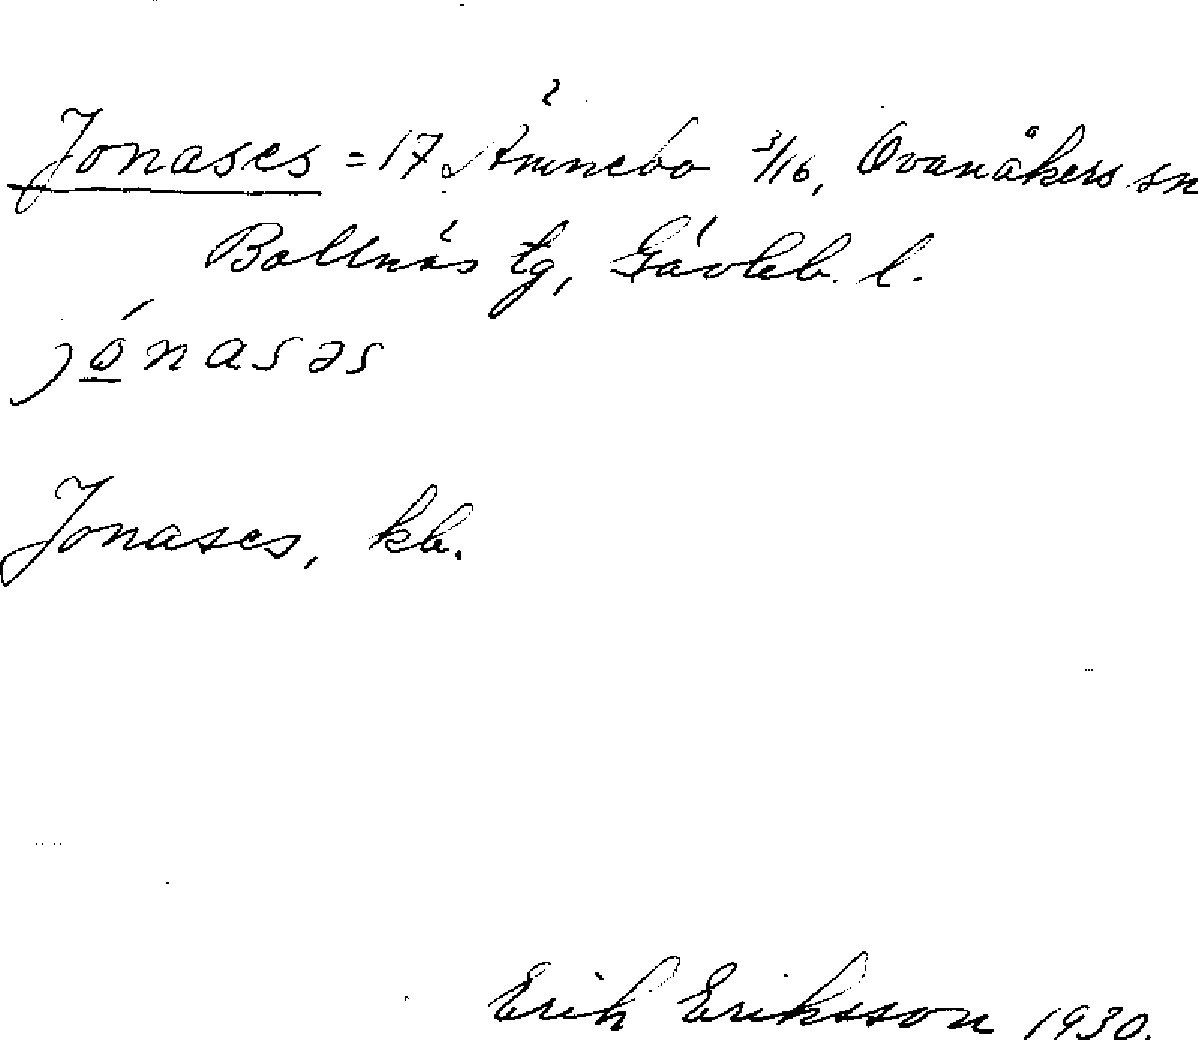 Jonases = 17 Ämnebo 3/16, Ovanåkers sn
Bollnäs tg, Gävleb. l.
jó̲nasəs
Jonases, kb.
Erik Eriksson 1930.